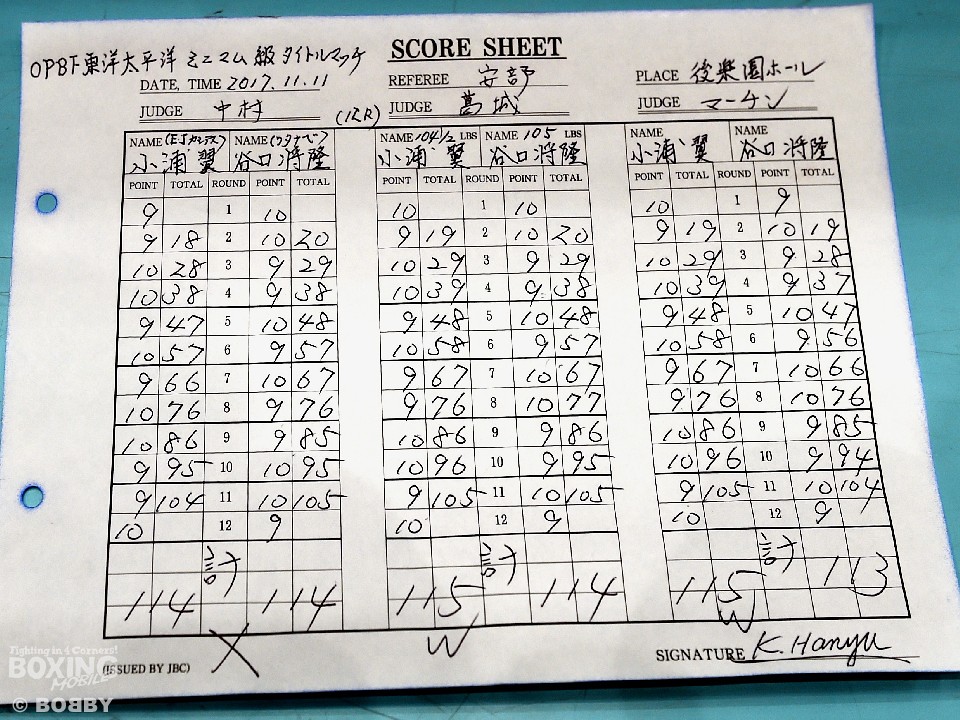 SCORE SHEET
OPBF東洋太平洋ミニマム級タイトルマッチ
DATE, TIME 2017.11.11 REFEREE 安部 PLACE 後楽園ホール
JUDGE 中村 (12R) JUDGE 葛城 JUDGE マーチン
NAME (E&Jカシアス) NAME (ワタナベ) NAME 104 1/2 LBS NAME 105 LBS NAME NAME
小浦 翼 谷口将隆 小浦 翼 谷口将隆 小浦 翼 谷口将隆
POINT TOTAL ROUND POINT TOTAL POINT TOTAL ROUND POINT TOTAL POINT TOTAL ROUND POINT TOTAL
9 1 10 10 1 10 10 1 9
9 18 2 10 20 9 19 2 10 20 9 19 2 10 19
10 28 3 9 29 10 29 3 9 29 10 29 3 9 28
10 38 4 9 38 10 39 4 9 38 10 39 4 9 37
9 47 5 10 48 9 48 5 10 48 9 48 5 10 47
10 57 6 9 57 10 58 6 9 57 10 58 6 9 56
9 66 7 10 67 9 67 7 10 67 9 67 7 10 66
10 76 8 9 76 9 76 8 10 77 9 76 8 10 76
10 86 9 9 85 10 86 9 9 86 10 86 9 9 85
9 95 10 10 95 10 96 10 9 95 10 96 10 9 94
9 104 11 10 105 9 105 11 10 105 9 105 11 10 104
10 12 9 10 12 9 10 12 9
計 計 計
114 114 115 114 115 113
X W W
(ISSUED BY JBC) SIGNATURE K. Hanyu
Fighting in 4 Corners!
BOXING
MOBILE
© BOBBY